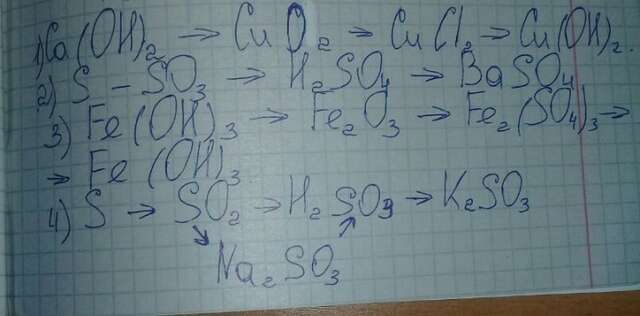 1) Ca(OH)₂ → CuO₂ → CuCl₂ → Cu(OH)₂.
2) S – SO₃ → H₂SO₄ → BaSO₄
3) Fe(OH)₃ → Fe₂O₃ → Fe₂(SO₄)₃ →
→ Fe(OH)₃
4) S → SO₂ → H₂SO₃ → K₂SO₃
↘ Na₂SO₃ ↗